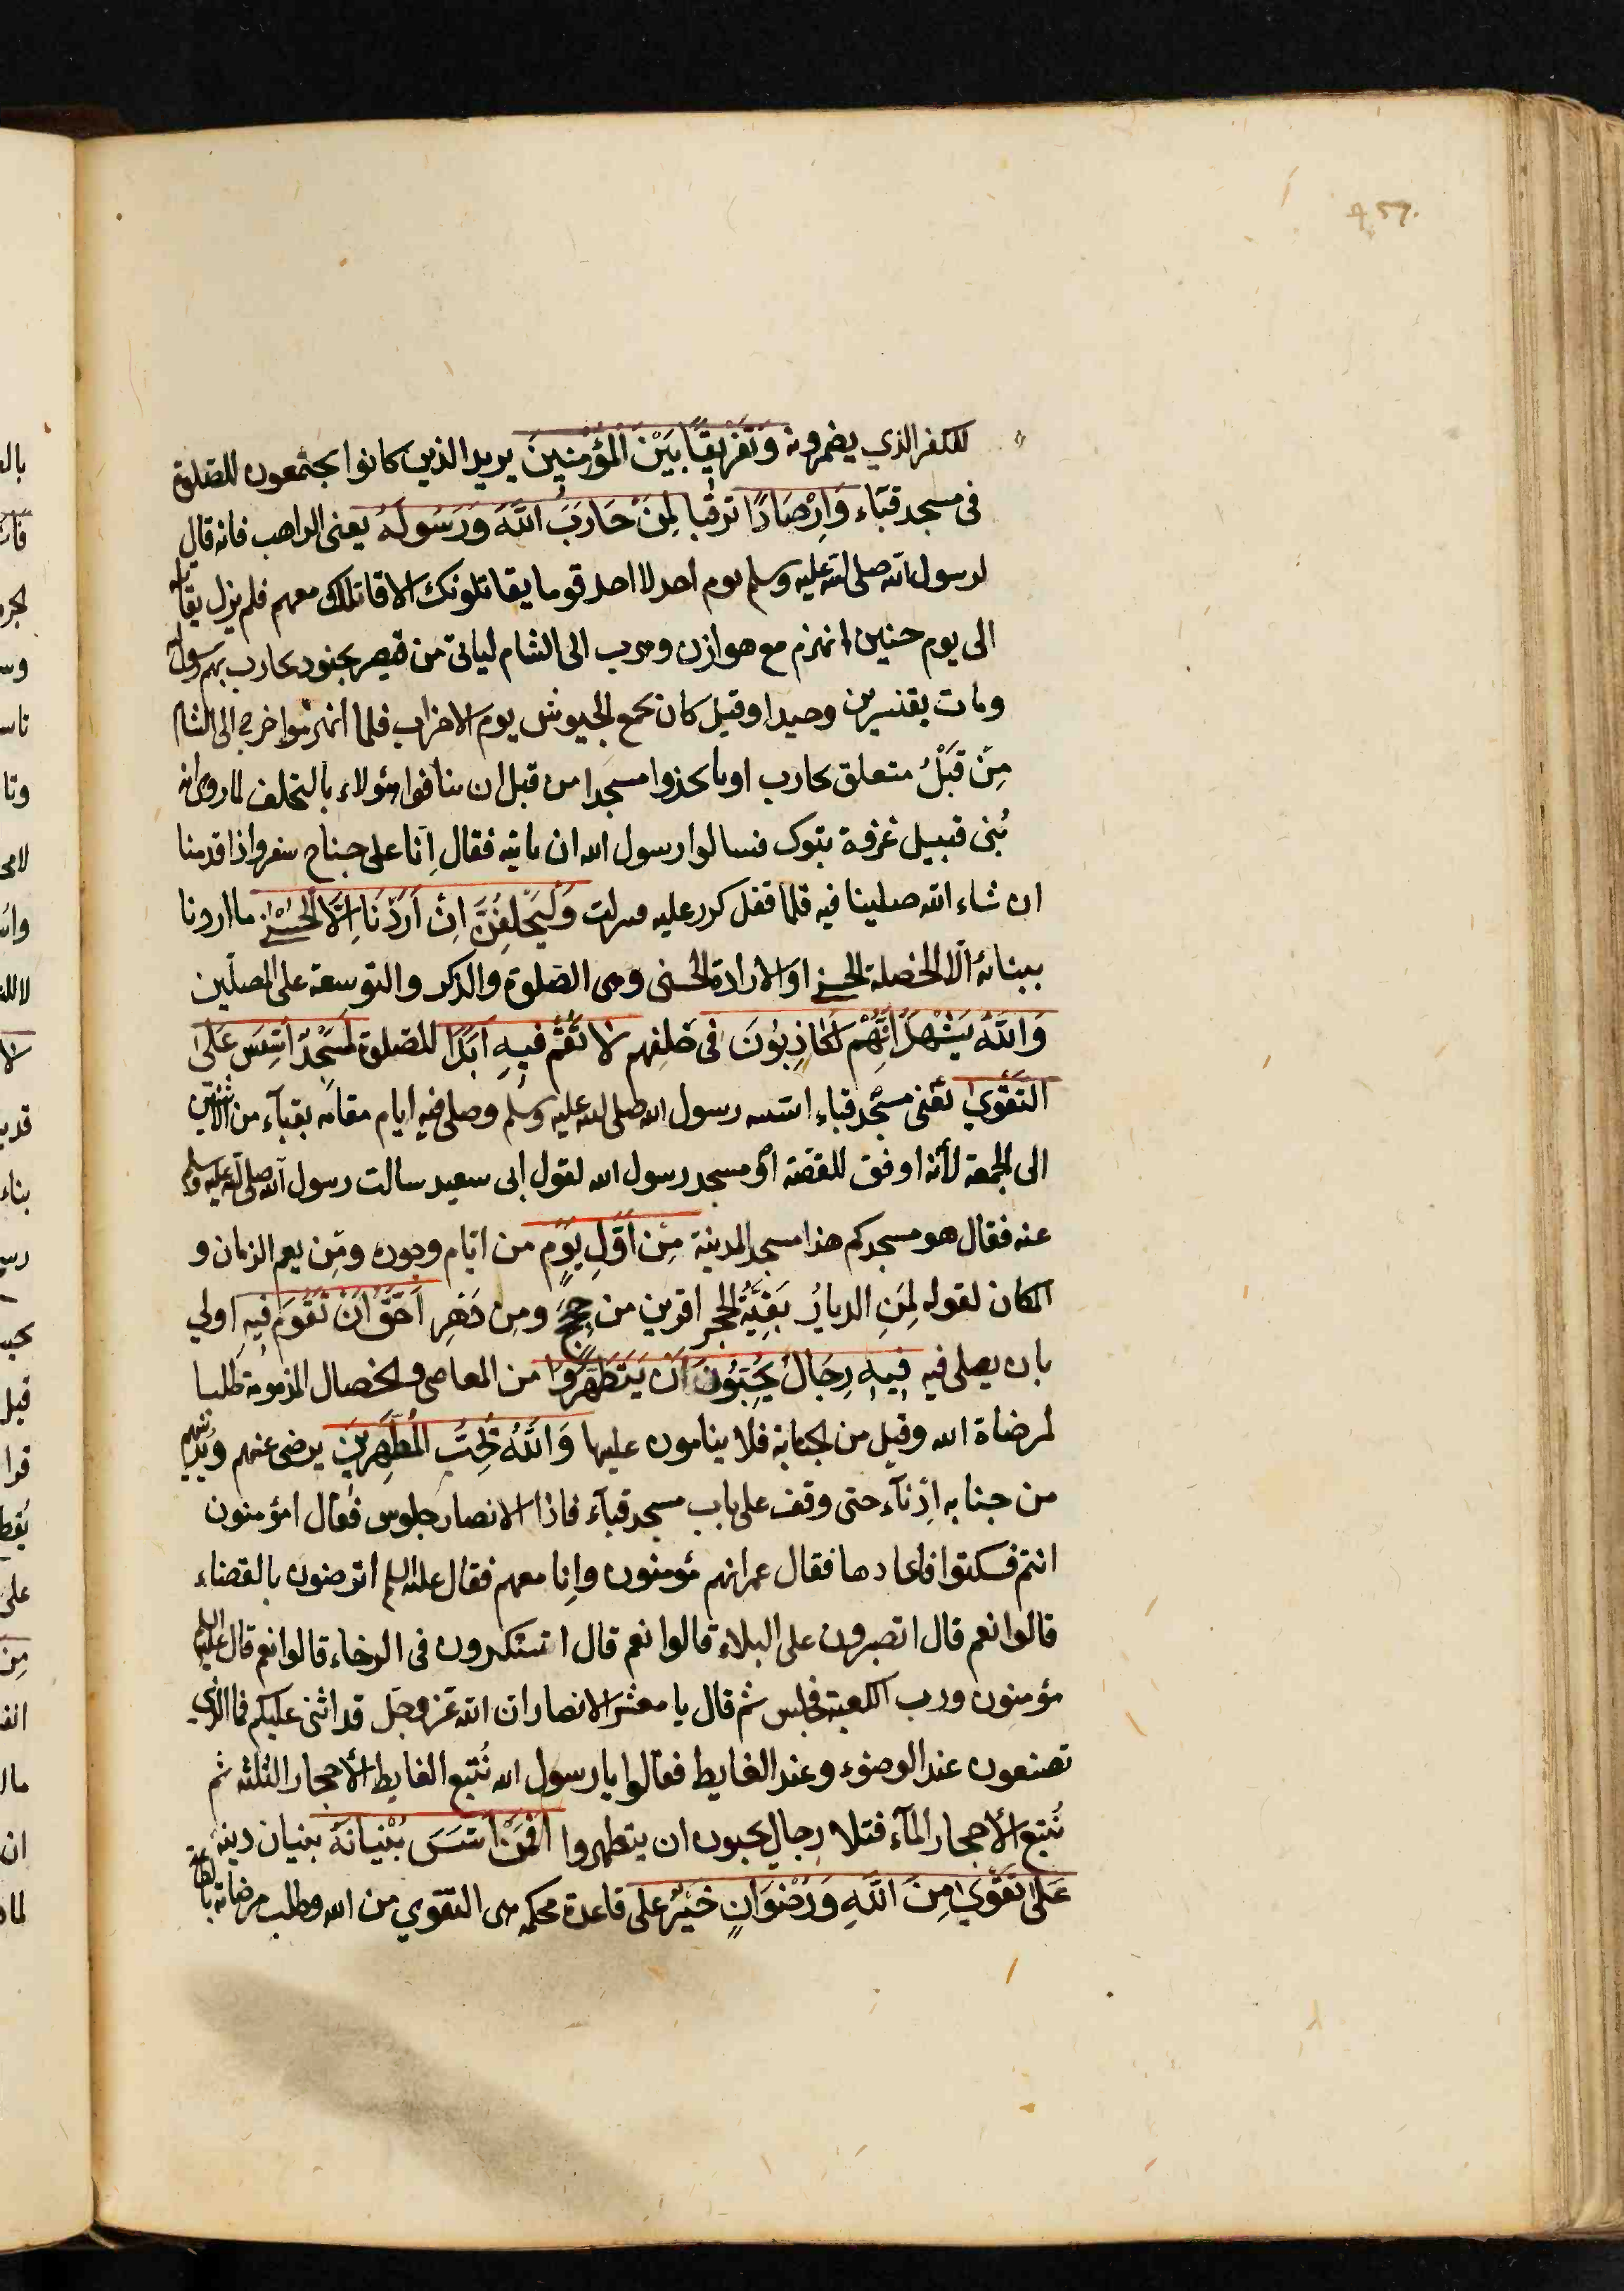 للكفر الذي يضمرونه وَتَفْرِيقًا بَيْنَ الْمُؤْمِنِينَ يريد الذين كانوا يجتمعون للصلوة
فى مسجد قباء وَاِرْصَادًا ترقبا لِمَنْ حَارَبَ اللّٰهَ وَرَسُولَهُ يعنى الراهب فانه قال
لرسول الله صلى الله عليه وسلم يوم احد لا اجد قوما يقاتلونك الا قاتلتك معهم فلم يزل يقاتله
الى يوم حنين انهزم مع هوازن وهرب الى الشام لياتى من قيصر بجنود يحارب بهم رسول
ومات بقنسرين وحيدا وقيل كان يجمع الجيوش يوم الاحزاب فلما انهزموا خرج الى الشام
مِنْ قَبْلُ متعلق بحارب او باتخذوا مسجدا من قبل ان ينافقوا هؤلاء بالتخلف لما روى انه
بُنى قبيل غزوة تبوك فسالوا رسول الله ان ياتيه فقال اِنّا على جناح سفر واذا قدمنا
ان شاء الله صلينا فيه فلما قفل كرر عليه فنزلت وَلَيَحْلِفُنَّ اِنْ اَرَدْنَا اِلَّا الْحُسْنٰى ما اردنا
ببنائه الّا الخصلة الحسنى او الارادة الحسنى وهى الصلوة والذكر والتوسعة على المصلّين
وَاللّٰهُ يَشْهَدُ اِنَّهُمْ لَكَاذِبُونَ فى حلفهم لَا تَقُمْ فِيهِ اَبَدًا للصلوة لَمَسْجِدٌ اُسِّسَ عَلَى
التَّقْوٰى يَعْنى مسجد قباء اسّسه رسول الله صلى الله عليه وسلم وصلى فيه ايام مقامه بقباء من الاثنين
الى الجمعة لأنّه اوفق للقصّة اَوْ مسجد رسول الله لقول ابى سعيد سالت رسول الله صلى الله عليه وسلم
عنه فقال هو مسجدكم هذا مسجد المدينة مِنْ اَوَّلِ يَوْمٍ من ايّام وجوده ومِن يعم الزمان و
المكان لقوله لِمَنِ الديارُ بقُنّة الحجر اقوين من حِجَجٍ ومِن دَهْرِ اَحَقُّ اَنْ تَقُومَ فِيهِ اولي
بان يصلى فيه فِيهِ رِجَالٌ يُحِبُّونَ اَنْ يَتَطَهَّرُوا من المعاصى والخصال المذمومة طلبا
لمرضاة الله وقيل من الجنابة فلا ينامون عليها وَاللّٰهُ يُحِبُّ الْمُطَّهِّرِينَ يرضى عنهم ويُدنيهم
من جنابه اِدْناَء حتى وقف على باب مسجد قباء فاذا الانصار جلوس فقال امؤمنون
انتم فسكتوا فاعادها فقال عمر انهم مؤمنون وانا معهم فقال عليه السلام اترضون بالقضاء
قالوا نعم قال اتصبرون على البلاء قالوا نعم قال اتشكرون فى الرخاء قالوا نعم قال عليه السلام
مؤمنون ورب الكعبة فجلس ثم قال يا معشر الانصار ان الله عَز وجَل قد اثنى عليكم فما الذي
تصنعون عند الوضوء وعند الغايط فقالوا يا رسول الله نُتبع الغايط الأحجار الثلثة ثم
نُتبع الأحجار الماَء فتلا رجال يحبون ان يتطهروا اَفَمَنْ اَسَّسَ بُنْيَانَهُ بنيان دينه
عَلٰى تَقْوٰى مِنَ اللّٰهِ وَرِضْوَانٍ خَيْرٌ على قاعدة محكمة هى التقوي من الله وطلب مرضاته بالطاعة